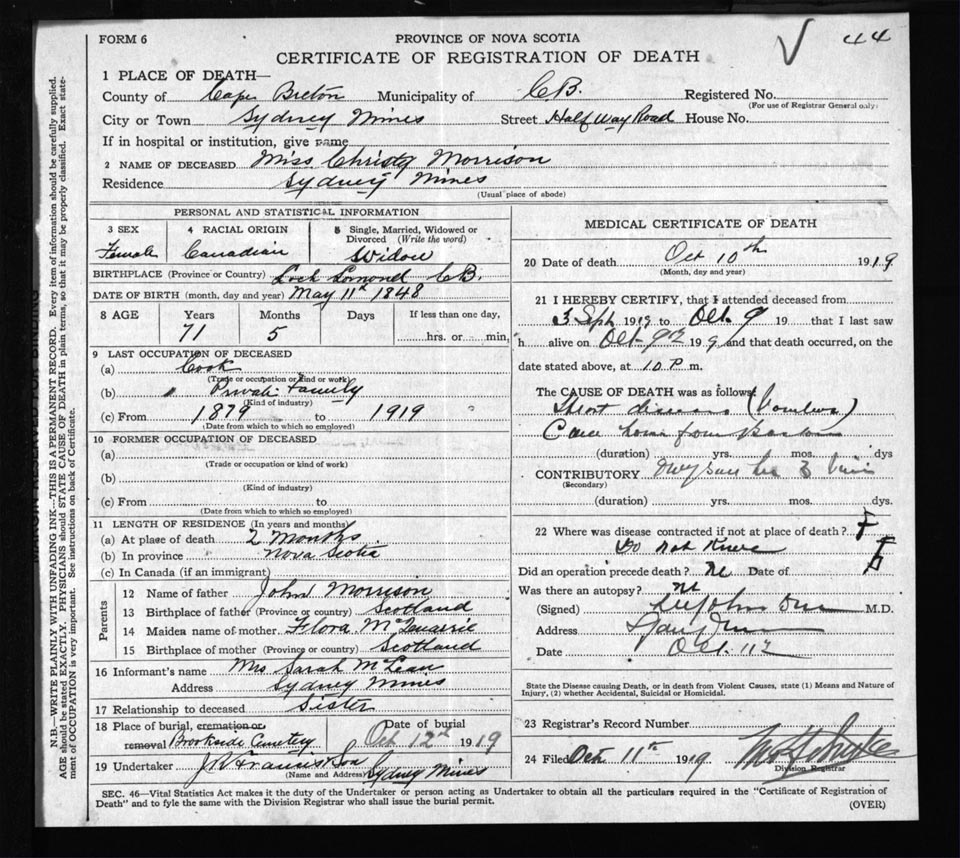 FORM 6
PROVINCE OF NOVA SCOTIA
44
CERTIFICATE OF REGISTRATION OF DEATH
1 PLACE OF DEATH—
County of Cape Breton Municipality of C.B. Registered No.
(For use of Registrar General only)
City or Town Sydney Mines Street Half Way Road House No.
If in hospital or institution, give name
2 NAME OF DECEASED Miss Christy Morrison
Residence Sydney Mines
(Usual place of abode)
PERSONAL AND STATISTICAL INFORMATION
3 SEX 4 RACIAL ORIGIN 5 Single, Married, Widowed or Divorced (Write the word)
Female Canadian Widow
BIRTHPLACE (Province or Country) Loch Lomond C.B.
DATE OF BIRTH (month, day and year) May 11th 1848
8 AGE Years Months Days If less than one day,
71 5 hrs. or min.
9 LAST OCCUPATION OF DECEASED
(a) Cook
(Trade or occupation or kind of work)
(b) Private Family
(Kind of industry)
(c) From 1879 to 1919
(Date from which to which so employed)
10 FORMER OCCUPATION OF DECEASED
(a)
(Trade or occupation or kind of work)
(b)
(Kind of industry)
(c) From to
(Date from which to which so employed)
11 LENGTH OF RESIDENCE (In years and months)
(a) At place of death 2 Months
(b) In province Nova Scotia
(c) In Canada (if an immigrant)
Parents
12 Name of father John Morrison
13 Birthplace of father (Province or country) Scotland
14 Maiden name of mother Flora
15 Birthplace of mother (Province or country) Scotland
16 Informant's name Mrs Sarah McLean
Address Sydney Mines
17 Relationship to deceased Sister
18 Place of burial, cremation or removal Brookside Cemetery
Date of burial Oct 12th 1919
19 Undertaker
(Name and Address) Sydney Mines
MEDICAL CERTIFICATE OF DEATH
20 Date of death Oct 10th 1919
(Month, day and year)
21 I HEREBY CERTIFY, that I attended deceased from
3 Sept 1919 to Oct. 9 19 that I last saw
h alive on Oct 9 19 9 and that death occurred, on the
date stated above, at 10 P. m.
The CAUSE OF DEATH was as follows:
home from
(duration) yrs. mos. dys
CONTRIBUTORY
(Secondary)
(duration) yrs. mos. dys.
22 Where was disease contracted if not at place of death?
Do not know
Did an operation precede death? No Date of
Was there an autopsy? No
(Signed) M.D.
Address
Date Oct. 11
State the Disease causing Death, or in death from Violent Causes, state (1) Means and Nature of
Injury, (2) whether Accidental, Suicidal or Homicidal.
23 Registrar's Record Number
24 Filed Oct 11th 1919
Division Registrar
SEC. 46—Vital Statistics Act makes it the duty of the Undertaker or person acting as Undertaker to obtain all the particulars required in the "Certificate of Registration of
Death" and to fyle the same with the Division Registrar who shall issue the burial permit.
(OVER)
MARGIN RESERVED FOR BINDING
N.B.—WRITE PLAINLY WITH UNFADING INK—THIS IS A PERMANENT RECORD. Every item of information should be carefully supplied.
AGE should be stated EXACTLY. PHYSICIANS should STATE CAUSE OF DEATH in plain terms, so that it may be properly classified. Exact statement of OCCUPATION is very important. See instructions on back of Certificate.